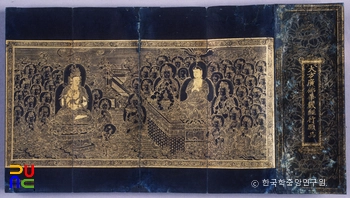 大方廣佛華嚴經
© 한국학중앙연구원